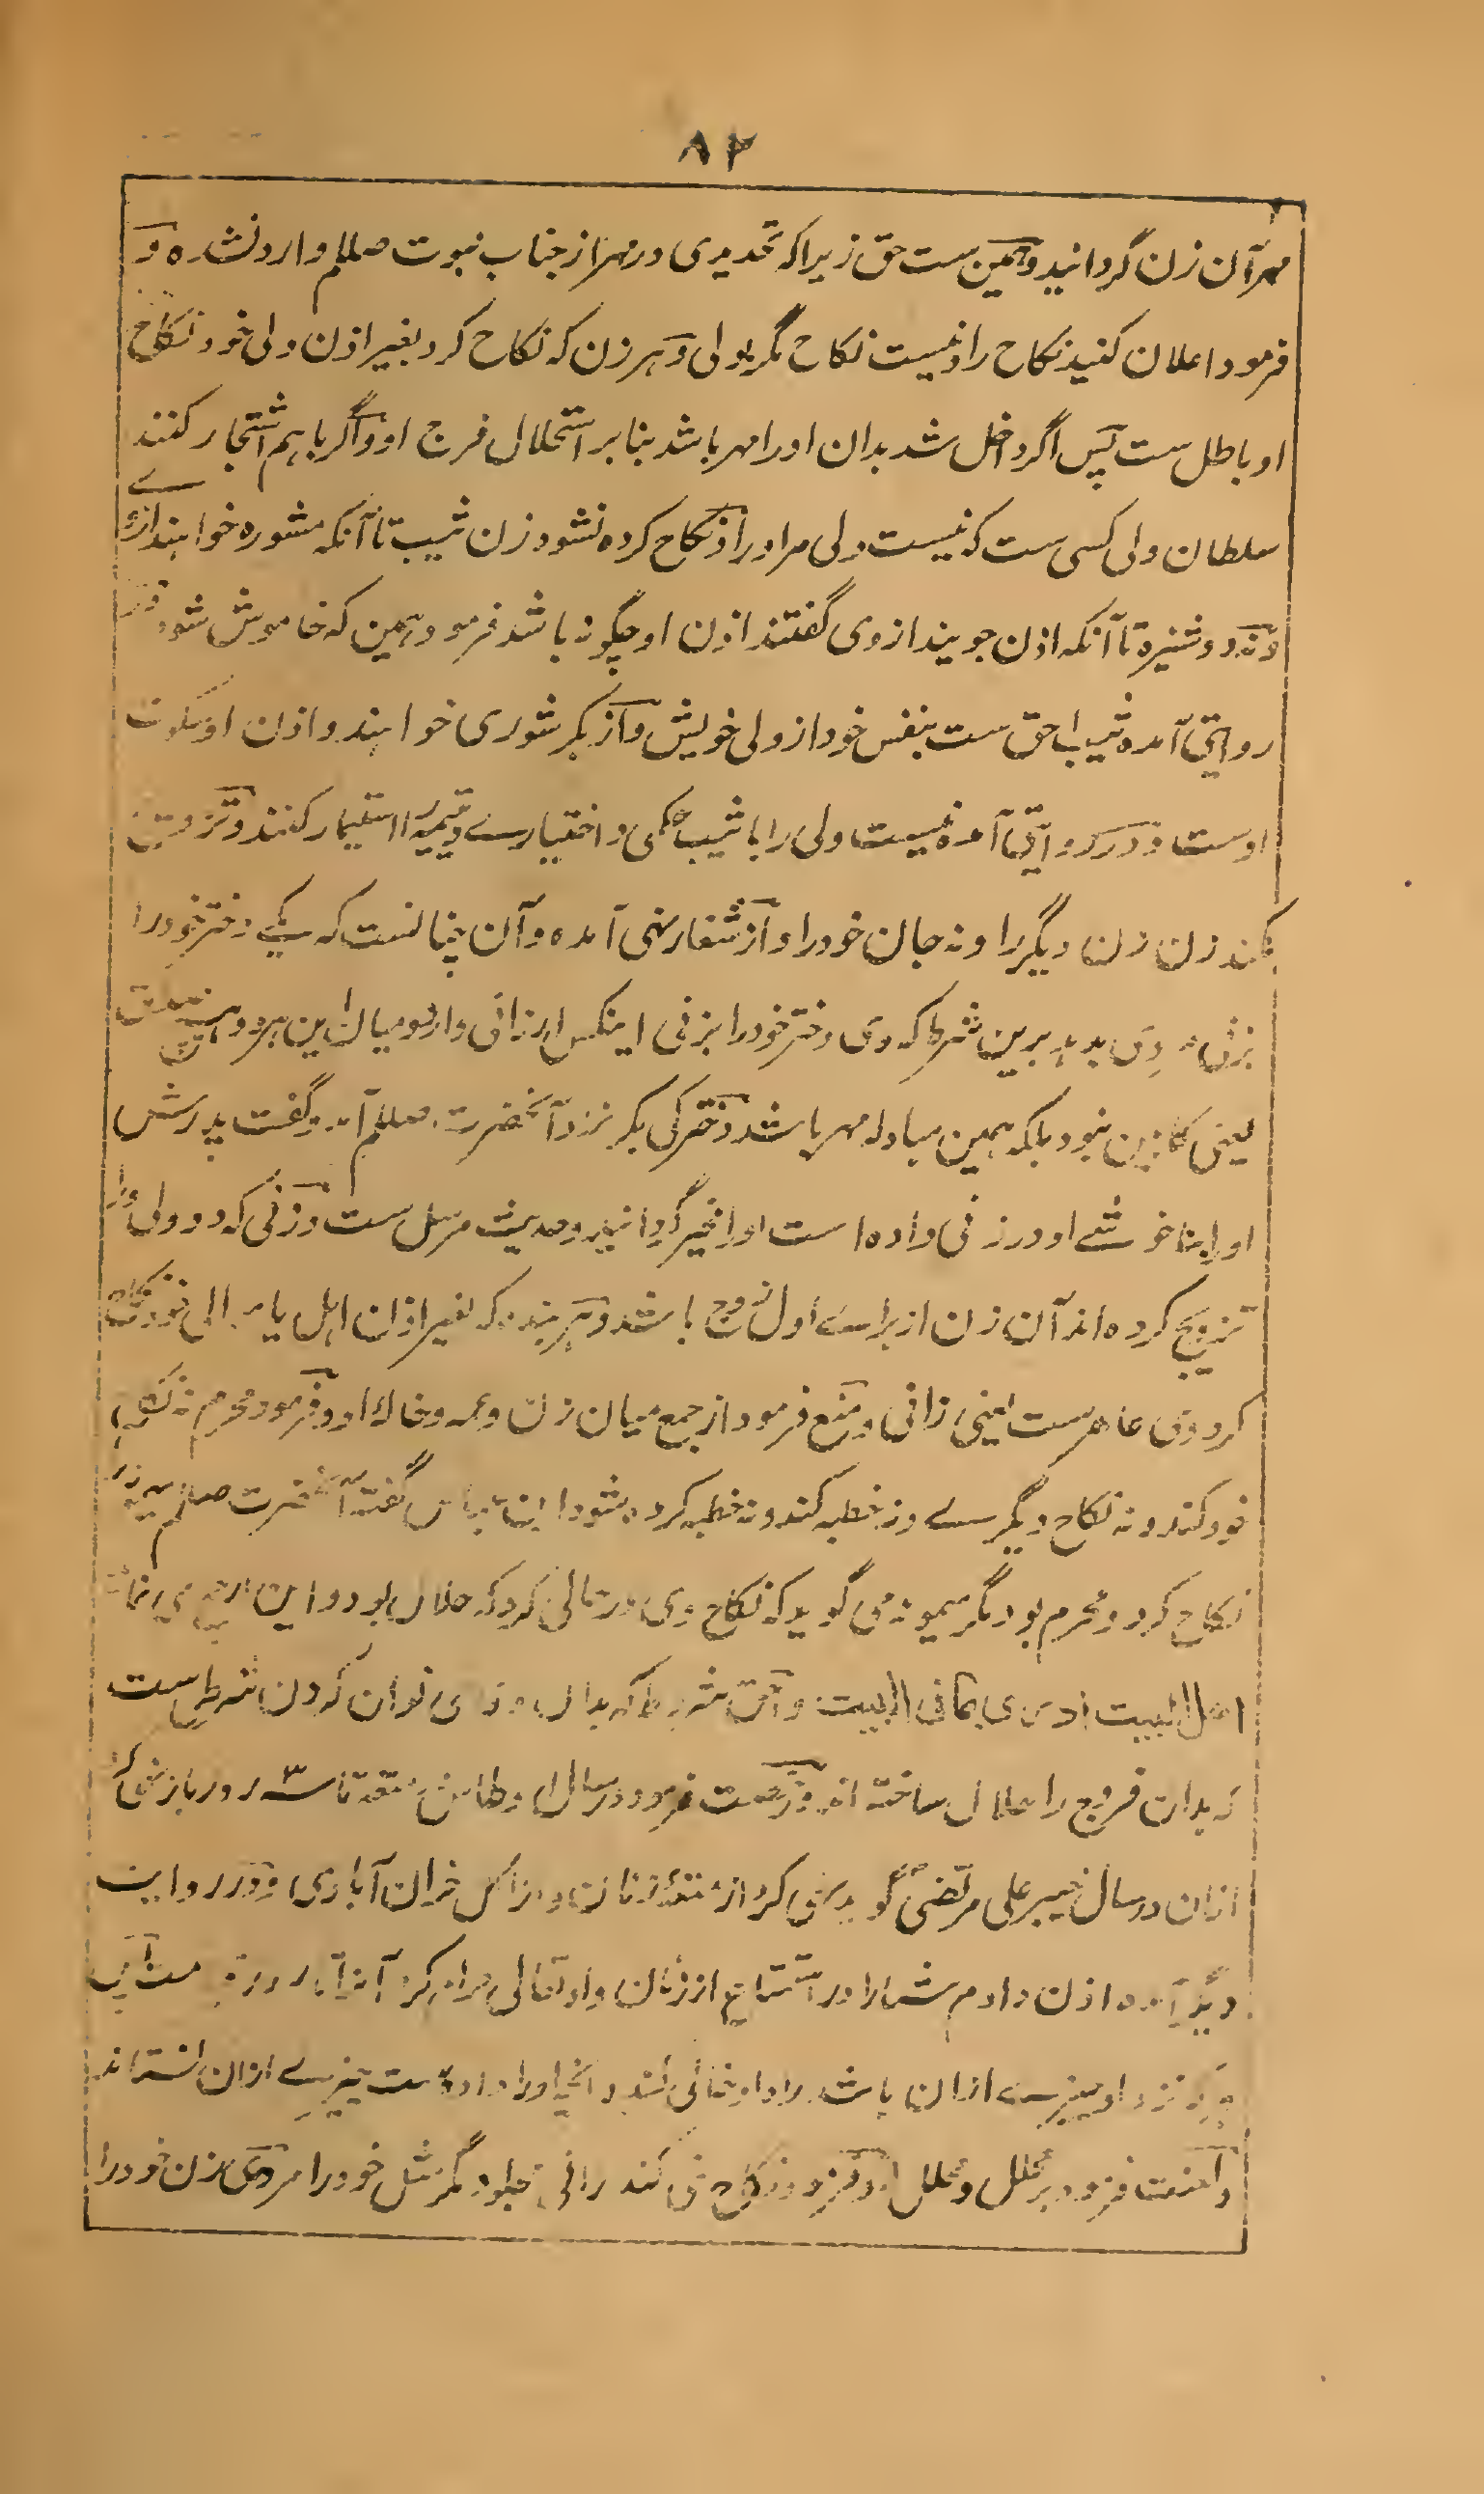 ۸۲
مهر آن زن گردانید و همین ست حق زیراکه تحدیدی در مهر از جناب نبوت صللم وارد نشده و
فرمود اعلان کنید نکاح را و نیست نکاح مگر بولی و هر زن که نکاح کرد بغیر اذن ولی خود نکاح
او باطل ست پس اگر دخل شد بدان او را مهر باشد بنا بر استحلال فرج او و اگر باهم اشتجار کنند
سلطان ولی کسی ست که نیست ولی مر او را و نکاح کرده نشود زن ثیب تا آنکه مشوره خواهند از وے
و نه دوشیزه تا آنکه اذن جویند از وی گفتند اذن او چگونه باشد فرمود همین که خاموش شود و در
روایتی آمده ثیب احق ست بنفس خود از ولی خویش و از بکر شوری خواهند و اذن او سکوت
اوست و در روایتی آمده نیست ولی را با ثیب حکمی و اختیارے و یتیمه را استیمار کنند و تزویج
نکند زن زن دیگر را و نه جان خود را و از شغار نهی آمده و آن چنانست که یکے دختر خود را
بزنی دیگری بدهد برین شرط که وی دختر خود را بزنی اینکس ارزانی دارد و میان این هر دو هیچ صداق
یعنی کابین نبود بلکه همین مبادله مهر باشد دخترکی بکر نزد آنحضرت صللم آمد و گفت پدرش
او را بناخوشے او در زنی داده است او را مخیر گردانید و حدیث مرسل ست و زنی که دو ولی او را
تزویج کرده اند آن زن از براے اول زوج باشد و هر بنده که بغیر اذن اهل یا موالی خود نکاح
کرد وی عاهر ست یعنی زانی و منع فرمود از جمع میان زن و عمه و خاله او و فرمود محرم نه نکاح
خود کند و نه نکاح دیگرے و نه خطبه کند و نه خطبه کرده شود ابن عباس گفته آنحضرت صللم میمونه را
نکاح کرد و محرم بود مگر میمونه می گوید که نکاح وی در حالی کرد که حلال بود و این
اهل البیت ادری بما فی البیت و احق شروط که بدان وفا می توان کردن شرطی است
که بدان فروج را حلال ساخته اند و رخصت فرمود در سال اوطاس متعه تا سه روز باز نهی کرد
ازان در سال خیبر علی مرتضی گوید نهی کرد از متعه زنان و از اکل خران آبادی و در روایت
دیگر آمده اذن دادم شما را در استمتاع از زنان و او تعالی حرام کرد آنرا تا روز قیامت پس
هر که نزد او چیزے ازان باشد راه او خالی کند و آنچه او را داده ست چیزے ازان نستاند
و لعنت فرمود بر محلل و محلل له و فرمود نکاح نمی کند زانی مجلود مگر مثل خود را مردی زن خود را